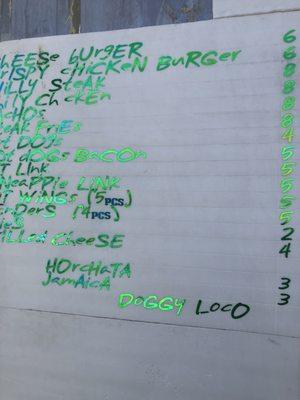 HEESE BURGER 6
RISPY CHICKEN BURGER 6
HILLY STEAK 8
ILLY CHICKEN 8
ACHOS 8
EAK FRIES 8
T DOGS 4
OT DOGS BACON 5
T LINK 5
NEAPPLE LINK 5
T WINGS (5PCS) 5
NDERS (4PCS) 5
IES 2
ILLED CHEESE 4
HORCHATA 3
JAMAICA 3
DOGGY LOCO